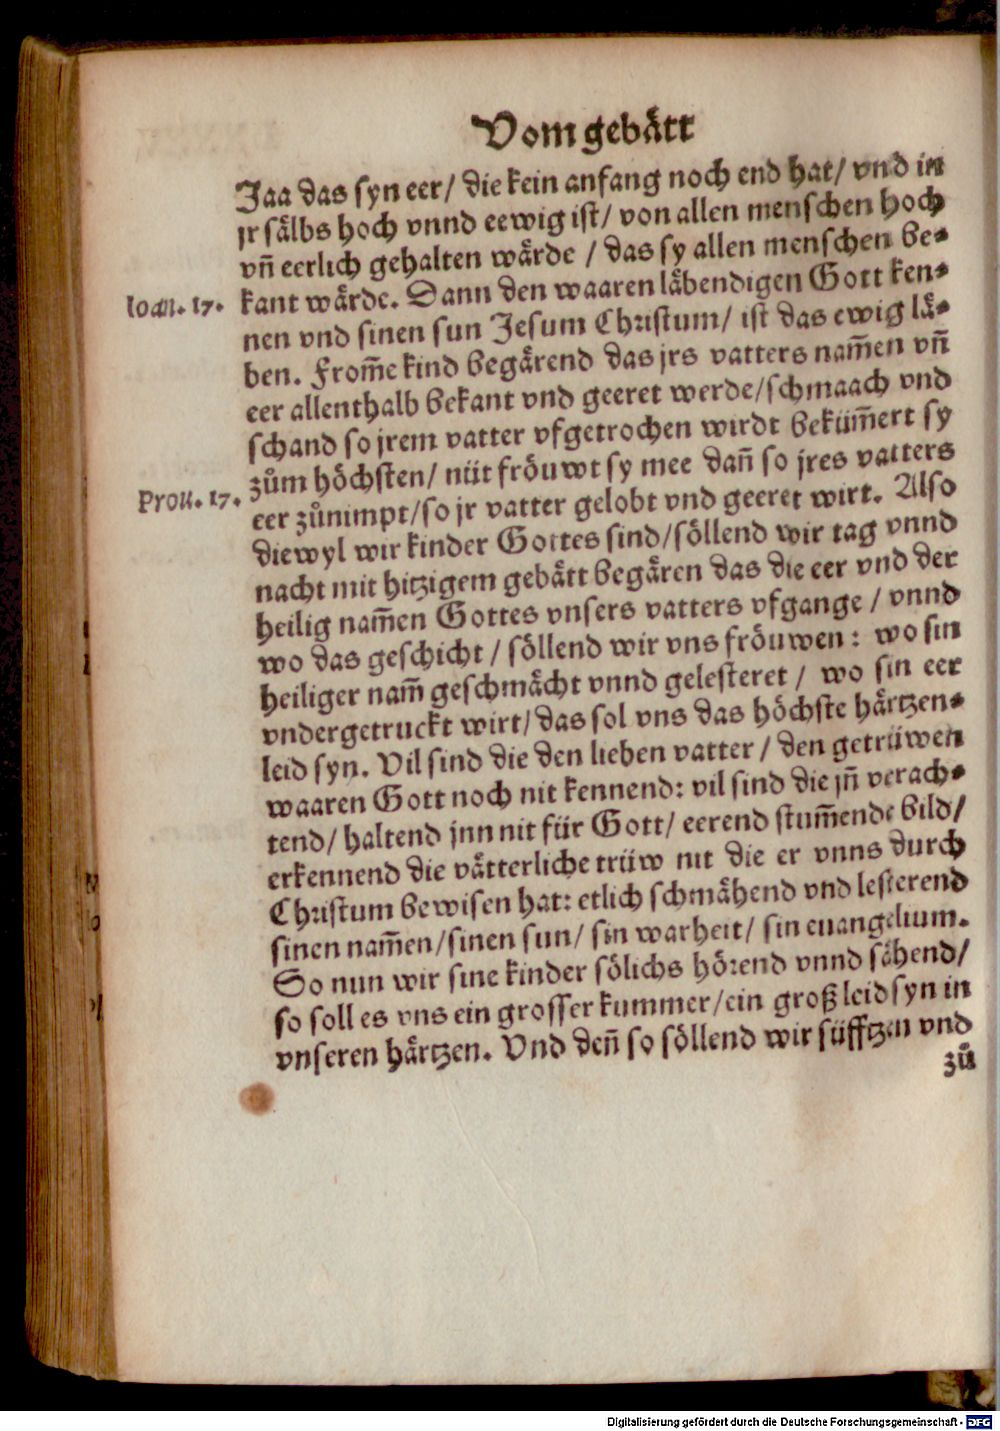 Vom gebått
Jaa das syn eer/ die kein anfang noch end hat/ vnd in
jr sålbs hoch vnnd eewig ist/ von allen menschen hoch
vñ eerlich gehalten wårde / das sy allen menschen be⸗
Ioan. 17. kant wårde. Dann den waaren låbendigen Gott ken⸗
nen vnd sinen sun Jesum Christum/ ist das ewig lå⸗
ben. From̃e kind begårend das jrs vatters nam̃en vñ
eer allenthalb bekant vnd geeret werde/schmaach vnd
schand so jrem vatter vfgetrochen wirdt beküm̃ert sy
zům höchsten/ nüt fröuwt sy mee dañ so jres vatters
Prou. 17. eer zůnimpt/so jr vatter gelobt vnd geeret wirt. Also
diewyl wir kinder Gottes sind/söllend wir tag vnnd
nacht mit hitzigem gebått begåren das die eer vnd der
heilig nam̃en Gottes vnsers vatters vfgange / vnnd
wo das geschicht / söllend wir vns fröuwen: wo sin
heiliger nam̃ geschmåcht vnnd gelesteret / wo sin eer
vndergetruckt wirt/das sol vns das höchste hårtzen⸗
leid syn. Vil sind die den lieben vatter / den getrüwen
waaren Gott noch nit kennend: vil sind die jñ verach⸗
tend/ haltend jnn nit für Gott/ eerend stum̃ende bild/
erkennend die våtterliche trüw nit die er vnns durch
Christum bewisen hat: etlich schmåhend vnd lesterend
sinen nam̃en/sinen sun/ sin warheit/ sin euangelium.
So nun wir sine kinder sölichs hörend vnnd såhend/
so soll es vns ein grosser kummer/ein groß leid syn in
vnseren hårtzen. Vnd deñ so söllend wir süfftzen vnd
zů
Digitalisierung gefördert durch die Deutsche Forschungsgemeinschaft - DFG